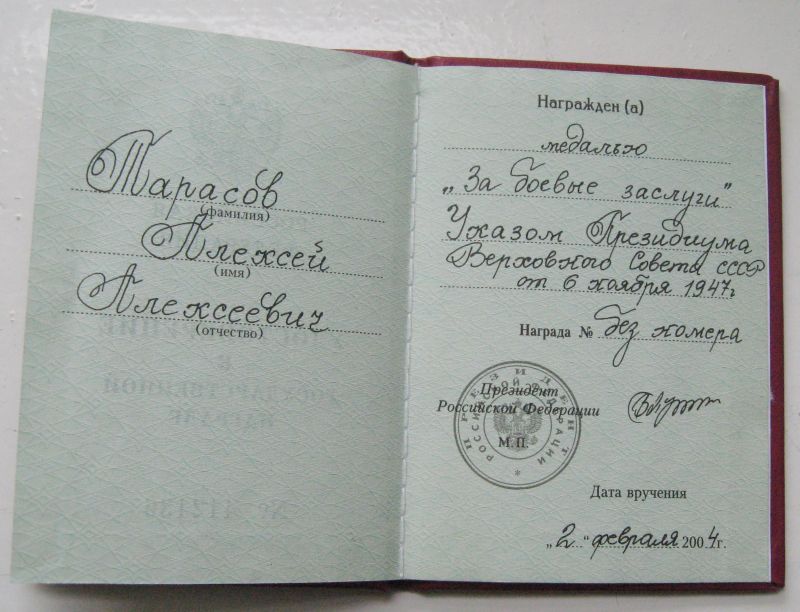 Тарасов
(фамилия)
Алексей
(имя)
Алексеевич
(отчество)
Награжден (а)
медалью
„За боевые заслуги"
Указом Президиума
Верховного Совета СССР
от 6 ноября 1947г
Награда № без номера
ПРЕЗИДЕНТ
РОССИЙСКОЙ ФЕДЕРАЦИИ
Президент
Российской Федерации
М.П.
Дата вручения
„2" февраля 2004г.